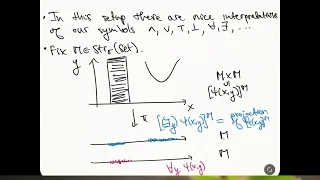 • In this setup there are nice interpretations
of our symbols ∧, ∨, ⊤, ⊥, ∀, ∃, ...
• Fix M ∈ Str_Σ(Set).
y
x
M×M
∪|
[ψ(x,y)]^M
↓ π
[∃y ψ(x,y)]^M = projection of [ψ(x,y)]^M
M
M
∀y ψ(x,y)